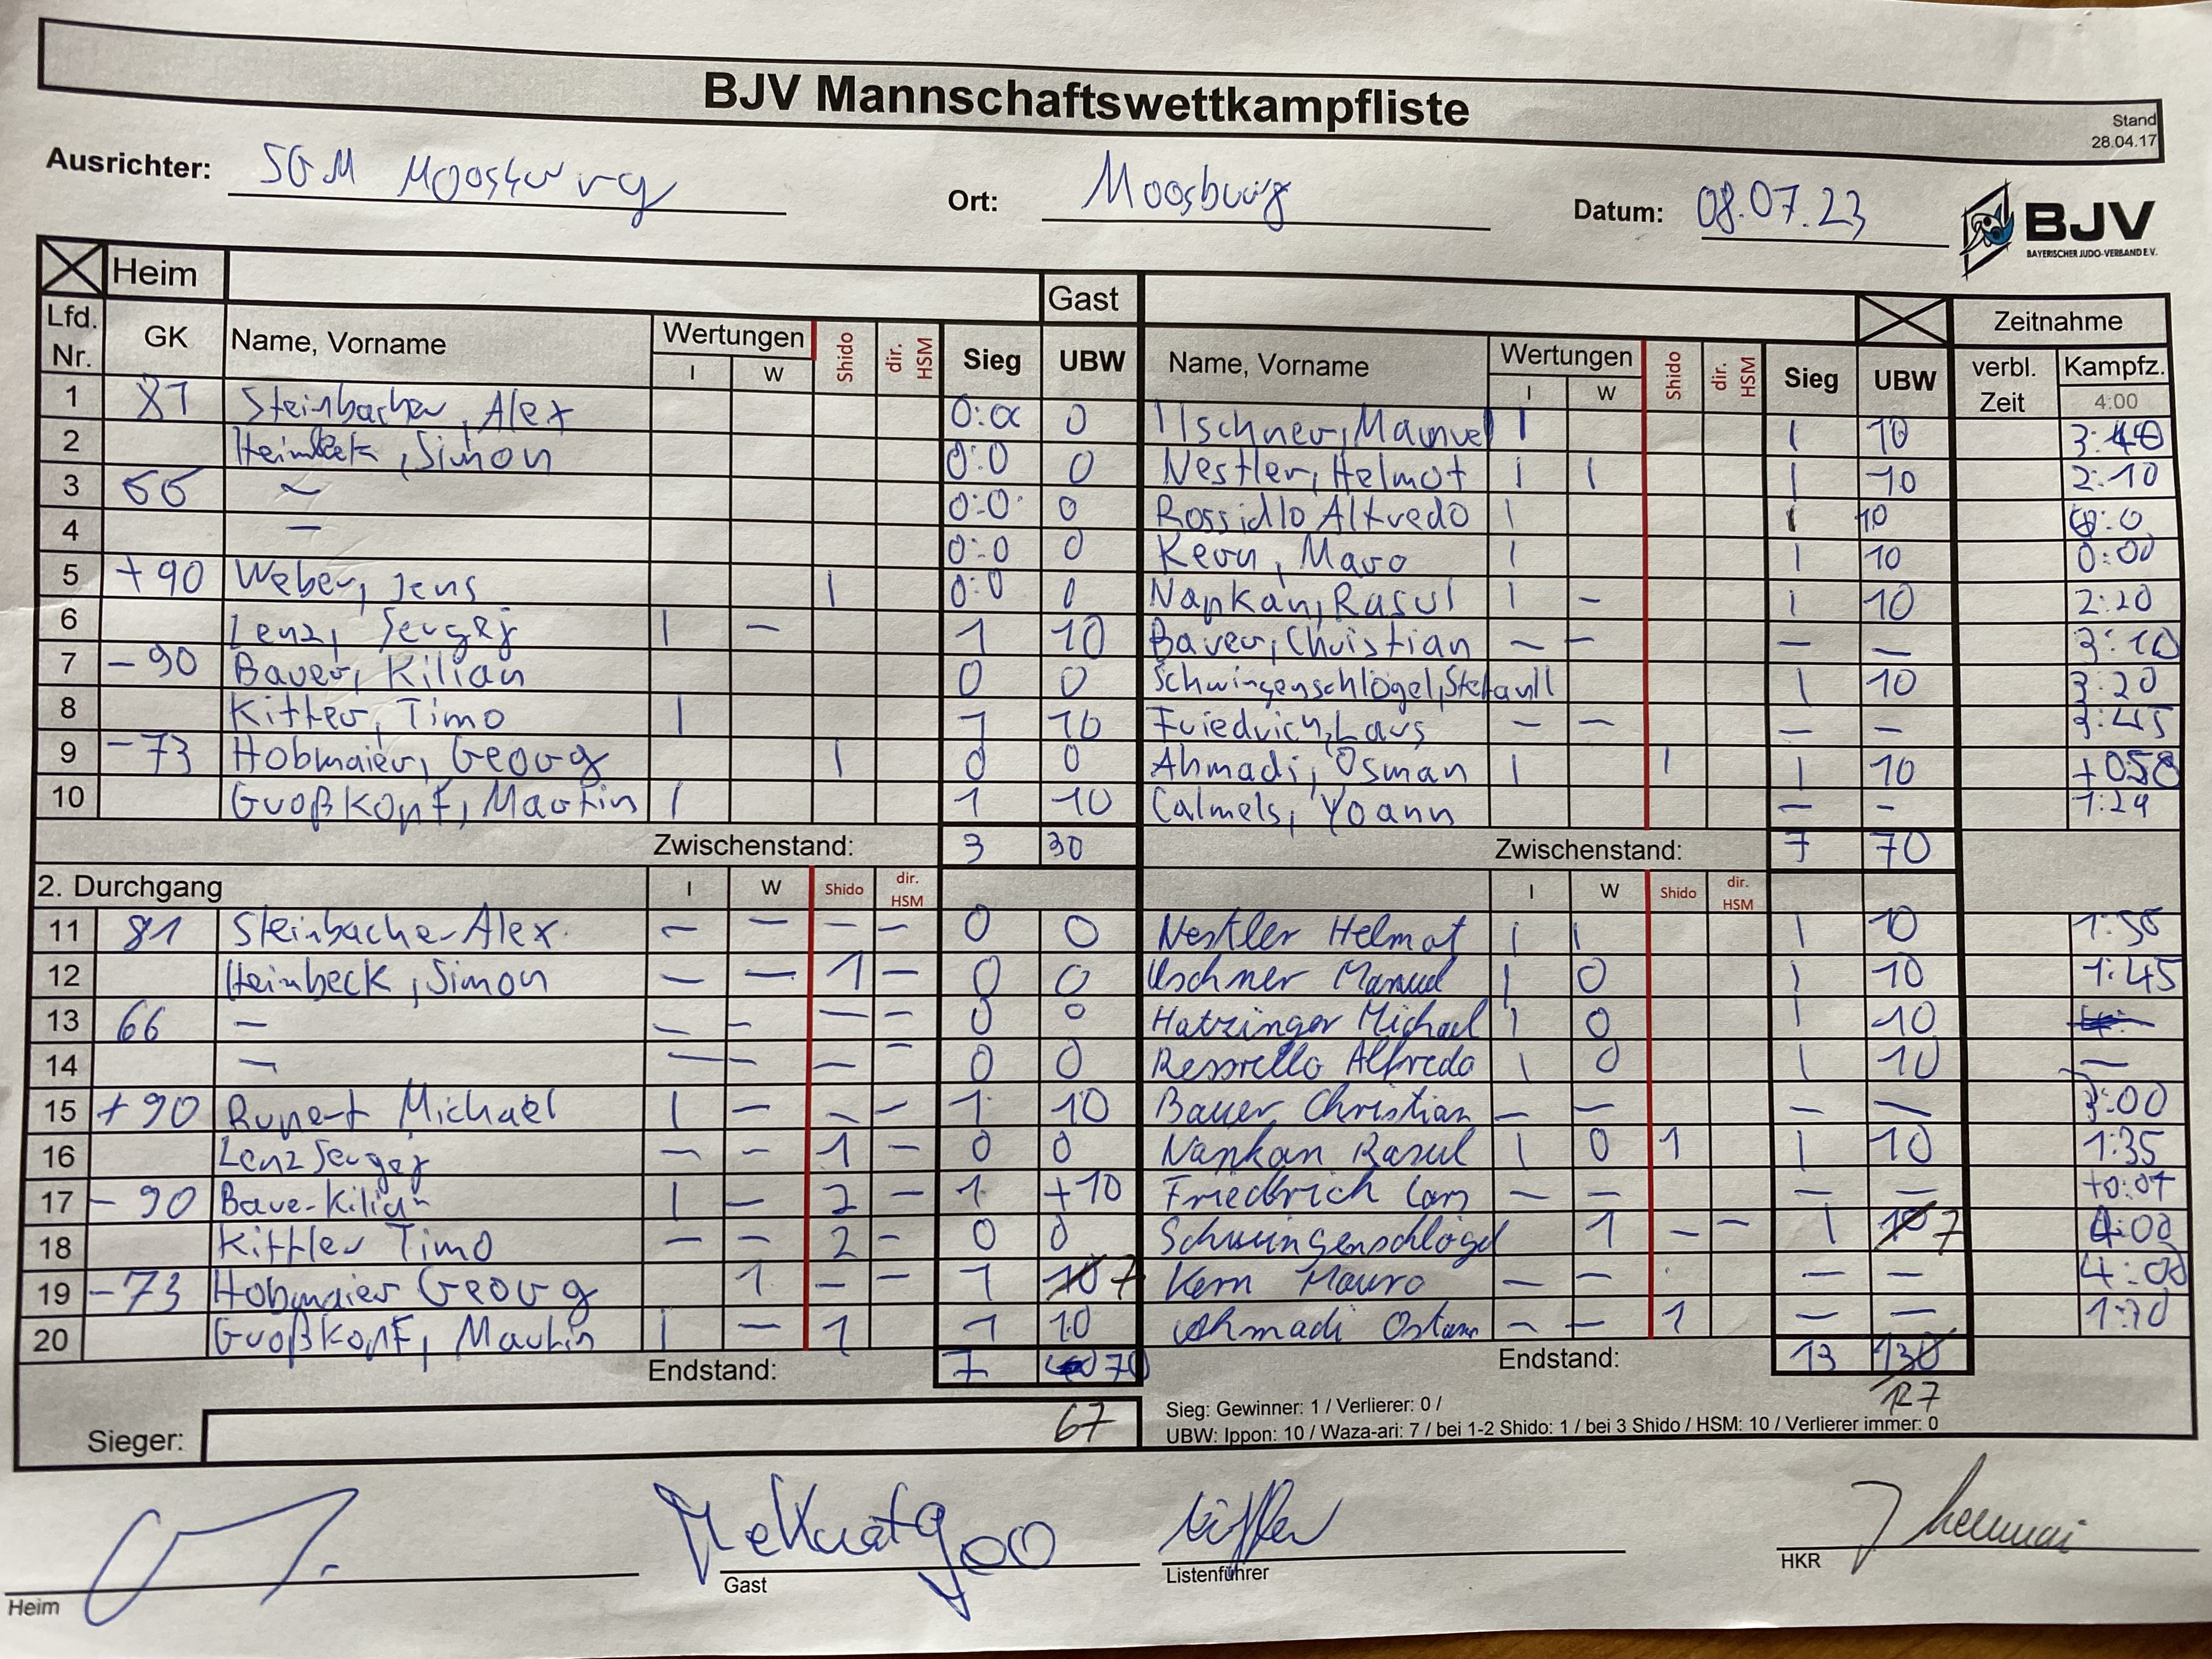 BJV Mannschaftswettkampfliste
Stand
28.04.17
Ausrichter: SGM Moosburg Ort: Moosburg Datum: 08.07.23
BJV
BAYERISCHER JUDO-VERBAND E.V.
Heim Gast Zeitnahme
Lfd. Nr. GK Name, Vorname Wertungen I W Shido dir. HSM Sieg UBW Name, Vorname Wertungen I W Shido dir. HSM Sieg UBW verbl. Zeit Kampfz. 4:00
1 81 Steinbacher, Alex 0:0 0 Ilschner, Manuel I 1 10
2 Heimbeck, Simon 0:0 0 Nestler, Helmot I I 1 10 2:10
3 66 – 0:0 0 Rossidlo Alfredo I 1 10 0:0
4 – 0:0 0 Kern, Mavo I 1 10 0:00
5 +90 Weber, Jens I 0:0 0 Napkan, Rasul I – 1 10 2:20
6 Lenz, Sergej I – 1 10 Bauer, Christian – – – – 3:10
7 -90 Bauer, Kilian 0 0 Schwingenschlögel, Stefan I I 1 10 3:20
8 Kittler, Timo I 1 10 Friedrich, Lars – – – – 3:45
9 -73 Hobmaier, Georg I 0 0 Ahmadi, Osman I I 1 10 +0:58
10 Großkopf, Martin I 1 10 Calmels, Yoann – – 1:29
Zwischenstand: 3 30 Zwischenstand: 7 70
2. Durchgang I W Shido dir. HSM I W Shido dir. HSM
11 81 Steinbacher Alex – – – – 0 0 Nestler Helmat I I 1 10
12 Heimbeck, Simon – – 1 – 0 0 Ilschner Manuel I 0 1 10 1:45
13 66 – – – – – 0 0 Hatzinger Michael I 0 1 10
14 – – – – – 0 0 Alfredo I 0 1 10 –
15 +90 Rupert Michael I – – – 1 10 Bauer Christian – – – – 3:00
16 Lenz Sergej – – 1 – 0 0 Napkan Rasul I 0 1 1 10 1:35
17 -90 Bauer Kilian I – 2 – 1 +10 Friedrich Lars – – – – +0:07
18 Kittler Timo – – 2 – 0 0 Schwingenschlögel 1 – – 1 10 7 4:00
19 -73 Hobmaier Georg 1 – – 1 10 7 Kern Mauro – – – – 4:00
20 Großkopf, Martin I – 1 1 10 Ahmadi Osman – – 1 – – 1:10
Endstand: 7 70 Endstand: 13 130
127
67
Sieger:
Sieg: Gewinner: 1 / Verlierer: 0 /
UBW: Ippon: 10 / Waza-ari: 7 / bei 1-2 Shido: 1 / bei 3 Shido / HSM: 10 / Verlierer immer: 0
Heim Gast Listenführer HKR